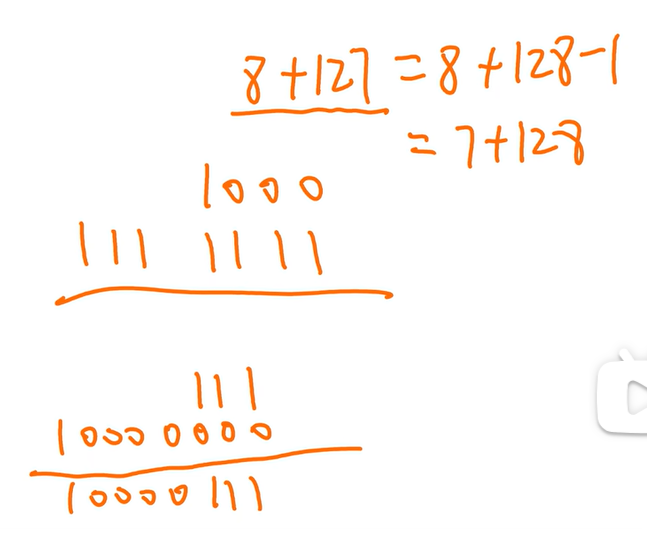 8+127 = 8+128-1
= 7+128
1000
111 1111
111
10000000
10000111